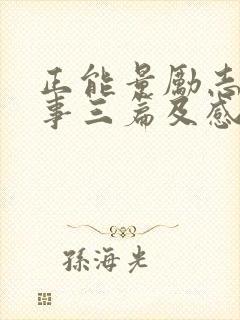 正能量励志
事三篇及感
孫海光